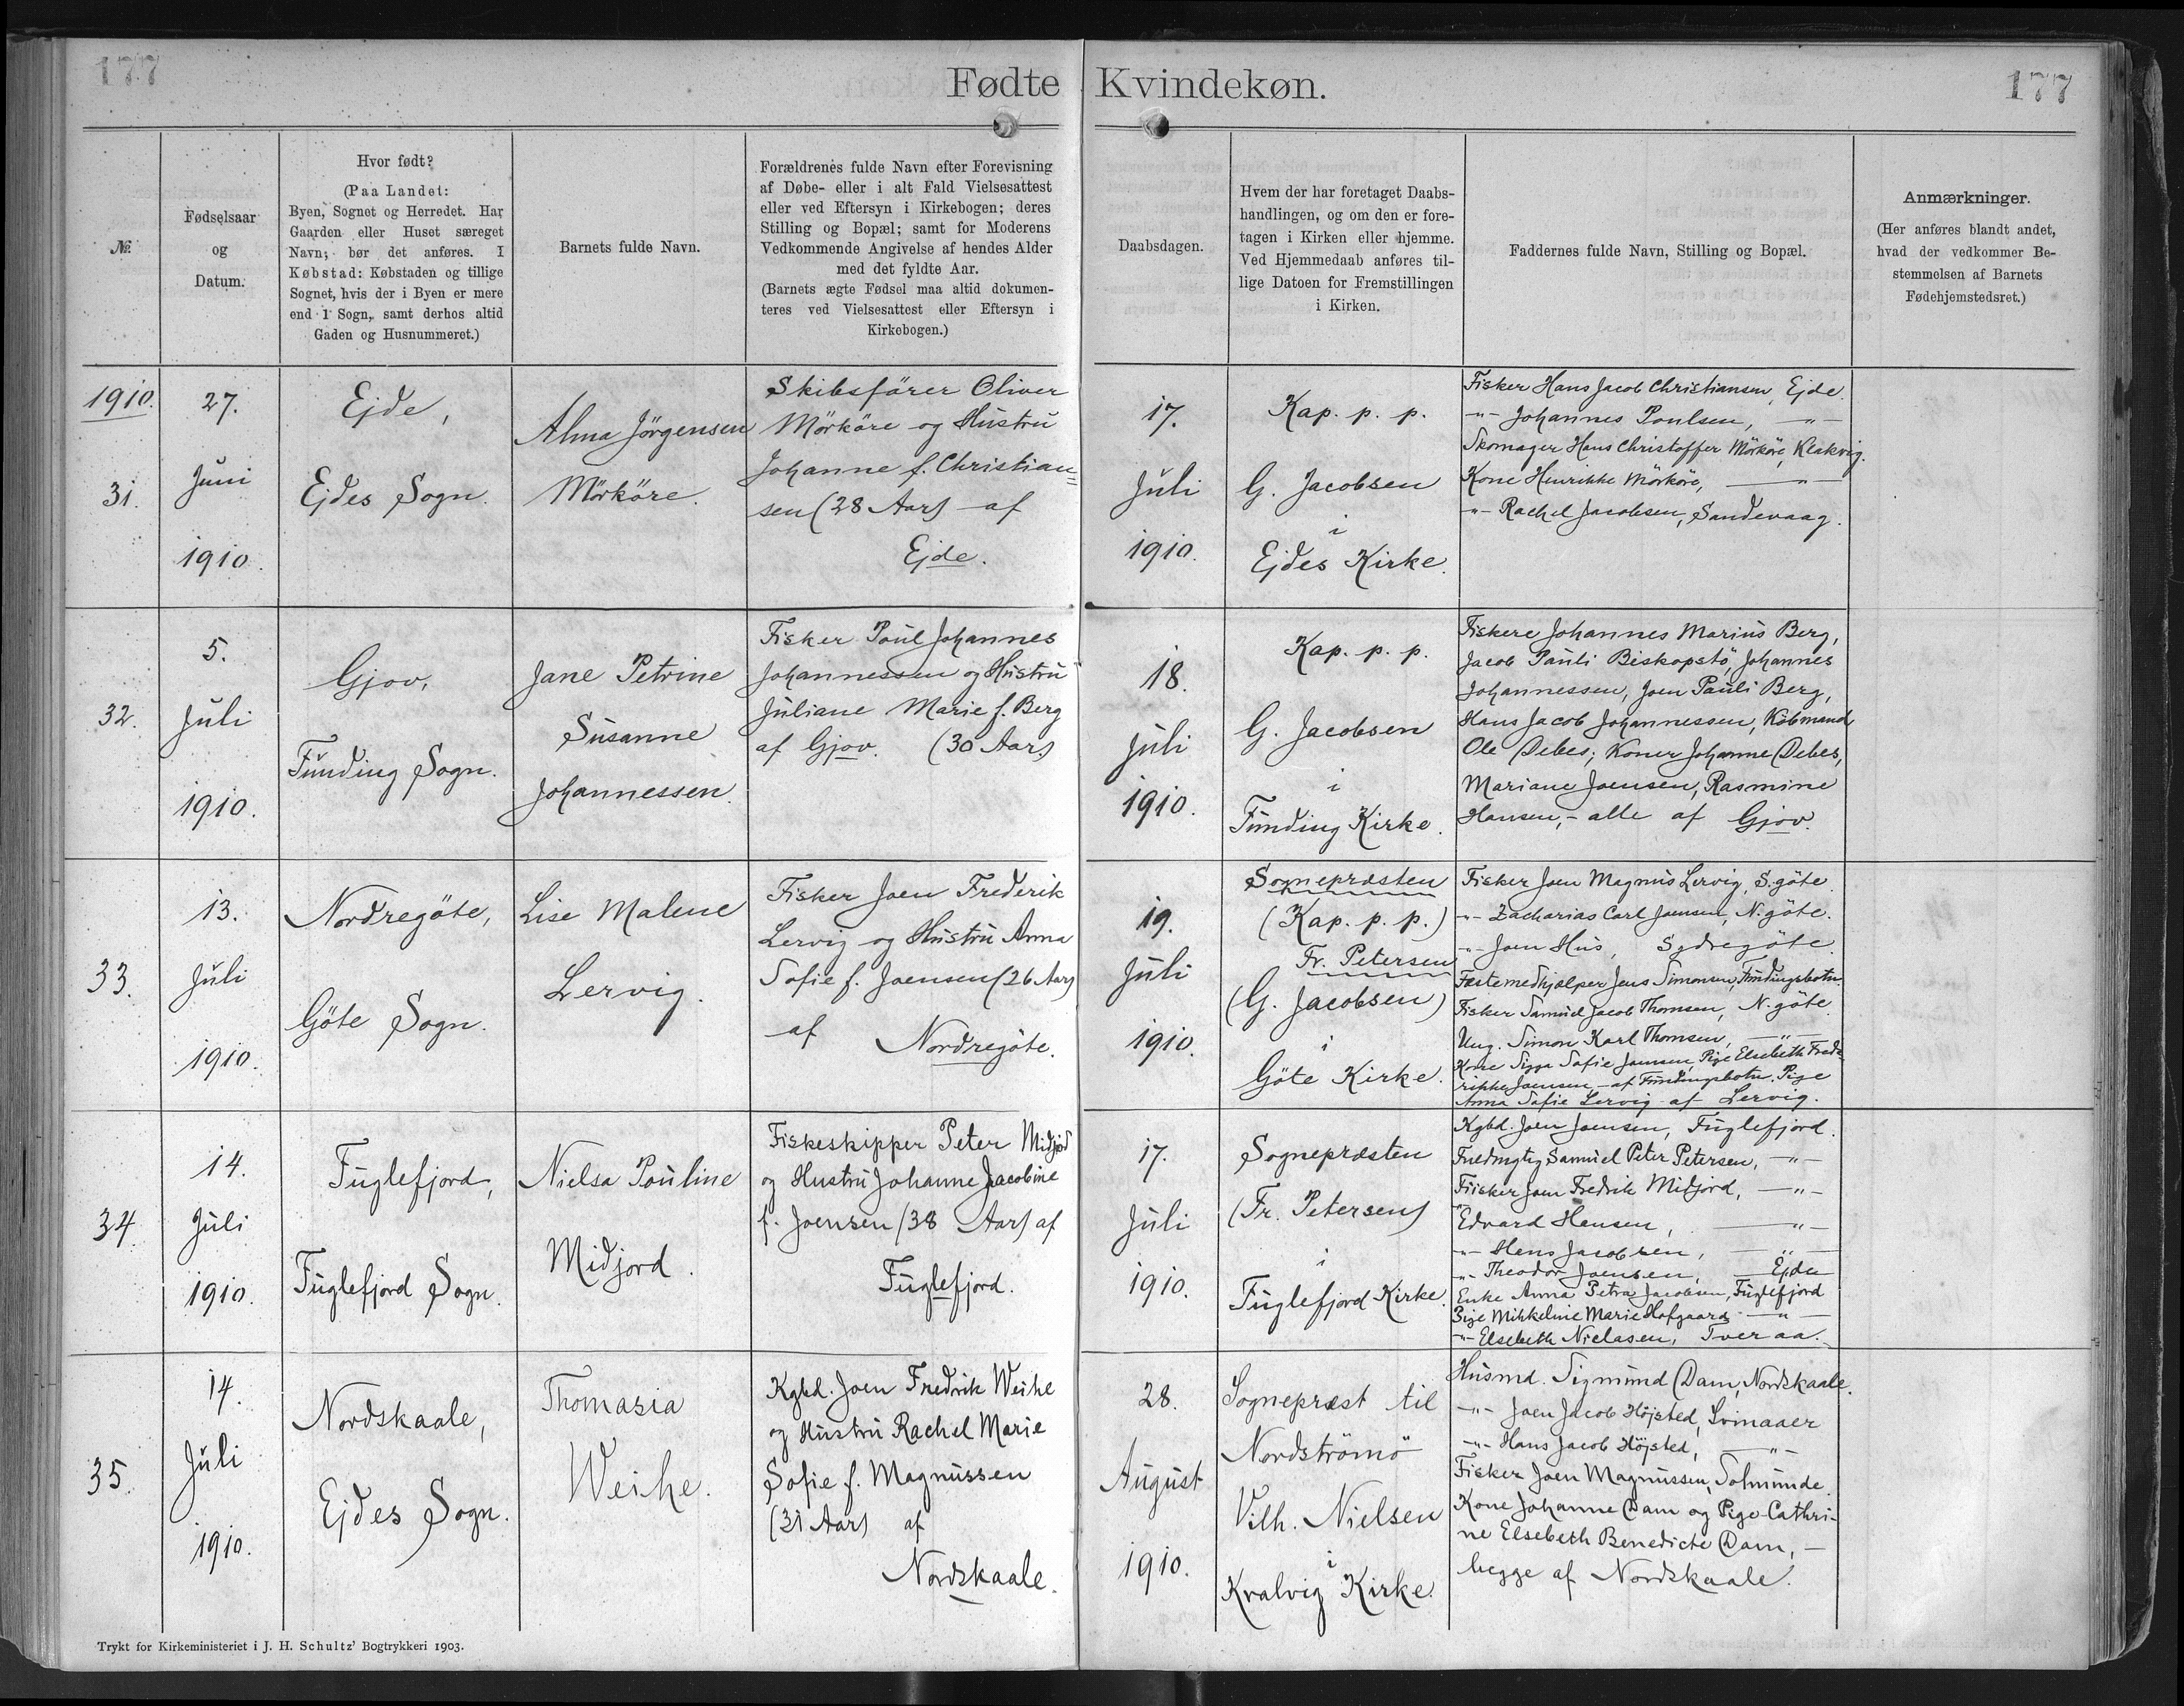 177
Fødte
Kvindekøn.
177
№
Fødselsaar
og
Datum.
Hvor født?
(Paa Landet:
Byen, Sognet og Herredet. Har
Gaarden eller Huset særeget
Navn; bør det anføres. I
Købstad: Købstaden og tillige
Sognet, hvis der i Byen er mere
end 1 Sogn, samt derhos altid
Gaden og Husnummeret.)
Barnets fulde Navn.
Forældrenes fulde Navn efter Forevisning
af Døbe- eller i alt Fald Vielsesattest
eller ved Eftersyn i Kirkebogen; deres
Stilling og Bopæl; samt for Moderens
Vedkommende Angivelse af hendes Alder
med det fyldte Aar.
(Barnets ægte Fødsel maa altid dokumen-
teres ved Vielsesattest eller Eftersyn i
Kirkebogen.)
Daabsdagen.
Hvem der har foretaget Daabs-
handlingen, og om den er fore-
tagen i Kirken eller hjemme.
Ved Hjemmedaab anføres til-
lige Datoen for Fremstillingen
i Kirken.
Faddernes fulde Navn, Stilling og Bopæl.
Anmærkninger.
(Her anføres blandt andet,
hvad der vedkommer Be-
stemmelsen af Barnets
Fødehjemstedsret.)
1910.
31.
27.
Juni
1910.
Ejde,
Ejdes Sogn.
Alma Jörgensen
Mörköre.
Skibsförer Oliver
Mörköre og Hustru
Johanne f. Christian=
sen (28 Aar) af
Ejde.
17.
Juli
1910.
Kap. p. p.
G. Jacobsen
i
Ejdes Kirke.
Fisker Hans Jacob Christiansen, Ejde.
-"- Johannes Poulsen, -"-
Skomager Hans Christoffer Mörköre, Klakvig.
Kone Henrikke Mörköre, -"-
-"- Rachel Jacobsen, Sandevaag.
32.
5.
Juli
1910.
Gjov,
Funding Sogn.
Jane Petrine
Susanne
Johannessen.
Fisker Poul Johannes
Johannessen og Hustru
Juliane Marie f. Berg
af Gjov. (30 Aar)
18.
Juli
1910.
Kap. p. p.
G. Jacobsen
i
Funding Kirke.
Fiskere Johannes Marius Berg,
Jacob Pauli Biskopstö, Johannes
Johannessen, Joen Pauli Berg,
Hans Jacob Johannessen, Köbmand
Ole Debes; Koner Johanne Debes,
Mariane Joensen, Rasmine
Hansen, - alle af Gjov.
33.
13.
Juli
1910.
Nordregöte,
Göte Sogn.
Lise Malene
Lervig.
Fisker Joen Frederik
Lervig og Hustru Anna
Sofie f. Joensen (26 Aar)
af Nordregöte.
19.
Juli
1910.
Sognepræsten
(Kap. p. p.)
Fr. Petersen
(G. Jacobsen)
i
Göte Kirke.
Fisker Joen Magnus Lervig, S. göte.
-"- Zacharias Carl Joensen, N. göte.
-"- Joen Hus, Sydregöte.
Fæstemedhjælper Jens Simonsen, Fundingsbotn.
Fisker Samuel Jacob Thomsen, N. göte.
Ung. Simon Karl Thomsen, -"-
Kone Sigga Sofie Joensen, Pige Elsebeth Frede-
rikke Joensen, - af Fundingsbotn. Pige
Anna Sofie Lervig af Lervig.
34.
14.
Juli
1910.
Fuglefjord,
Fuglefjord Sogn.
Nielsa Pouline
Midjord.
Fiskeskipper Peter Midjord
og Hustru Johanne Jacobine
f. Joensen (38 Aar) af
Fuglefjord.
17.
Juli
1910.
Sognepræsten
(Fr. Petersen)
i
Fuglefjord Kirke.
Kgbd. Joen Joensen, Fuglefjord.
Fuldmgtig Samuel Peter Petersen, -"-
Fisker Joen Fredrik Midjord, -"-
" Edvard Hansen, -"-
-"- Hans Jacobsen, -"-
-"- Theodor Joensen, Ejde
Enke Anna Petra Jacobsen, Fuglefjord
Pige Mikkeline Marie Hofgaard -"-
-"- Elsebeth Nielasen, Tveraa.
35.
14.
Juli
1910.
Nordskaale,
Ejdes Sogn.
Thomasia
Weihe.
Kgbd. Joen Fredrik Weihe
og Hustru Rachel Marie
Sofie f. Magnussen
(31 Aar) af
Nordskaale.
28.
August
1910.
Sognepræst til
Nordströmö
Vilh. Nielsen
i
Kvalvig Kirke.
Husmd. Sigmund Dam, Nordskaale.
-"- Joen Jacob Höjsted, Svinaaer
-"- Hans Jacob Höjsted, -"-
Fisker Joen Magnussen, Solmunde.
Kone Johanne Dam og Pige Cathri-
ne Elsebeth Benedicte Dam, -
begge af Nordskaale.
Trykt for Kirkeministeriet i J. H. Schultz' Bogtrykkeri 1903.